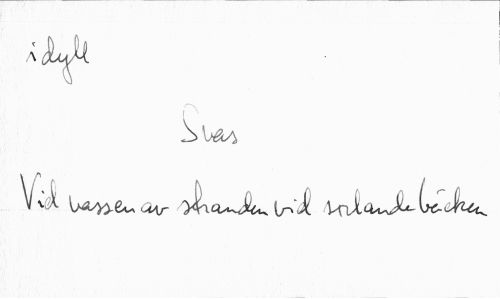 idyll
Svas
Vid vassen av stranden vid sorlande bäcken